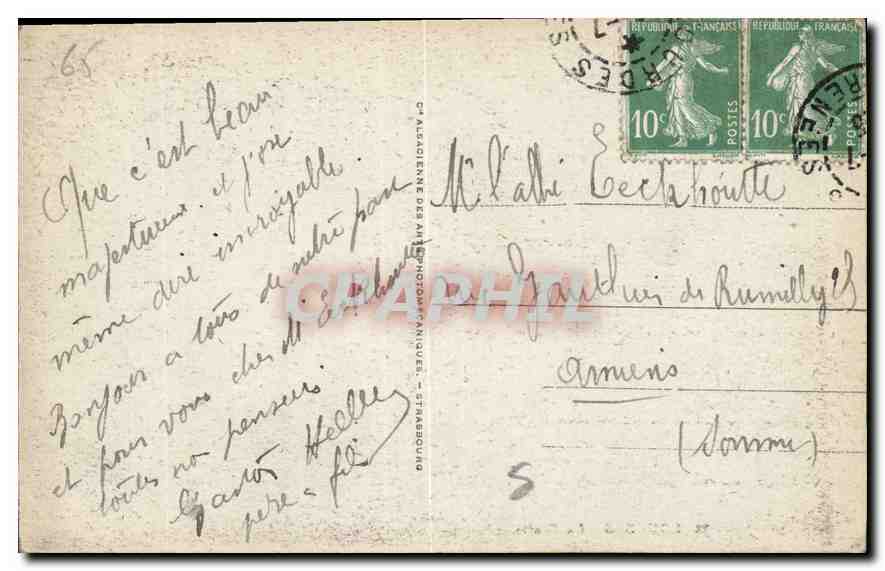 65
Que c'est beau
majestueux. et j'ose
même dire incroyable.
Bonjour a tous de notre part
et pour vous cher M Eeckhoutte
toutes nos pensées
Gaston Helle
père & fils
Cie ALSACIENNE DES ARTS PHOTOMÉCANIQUES. — STRASBOURG
CPAPHIL
REPUBLIQUE FRANÇAISE
10c
POSTES
REPUBLIQUE FRANÇAISE
10c
POSTES
LOURDES
Mr l'abbé Eeckhoutte
rue Gauthier de Rumilly
Amiens
(Somme)
5